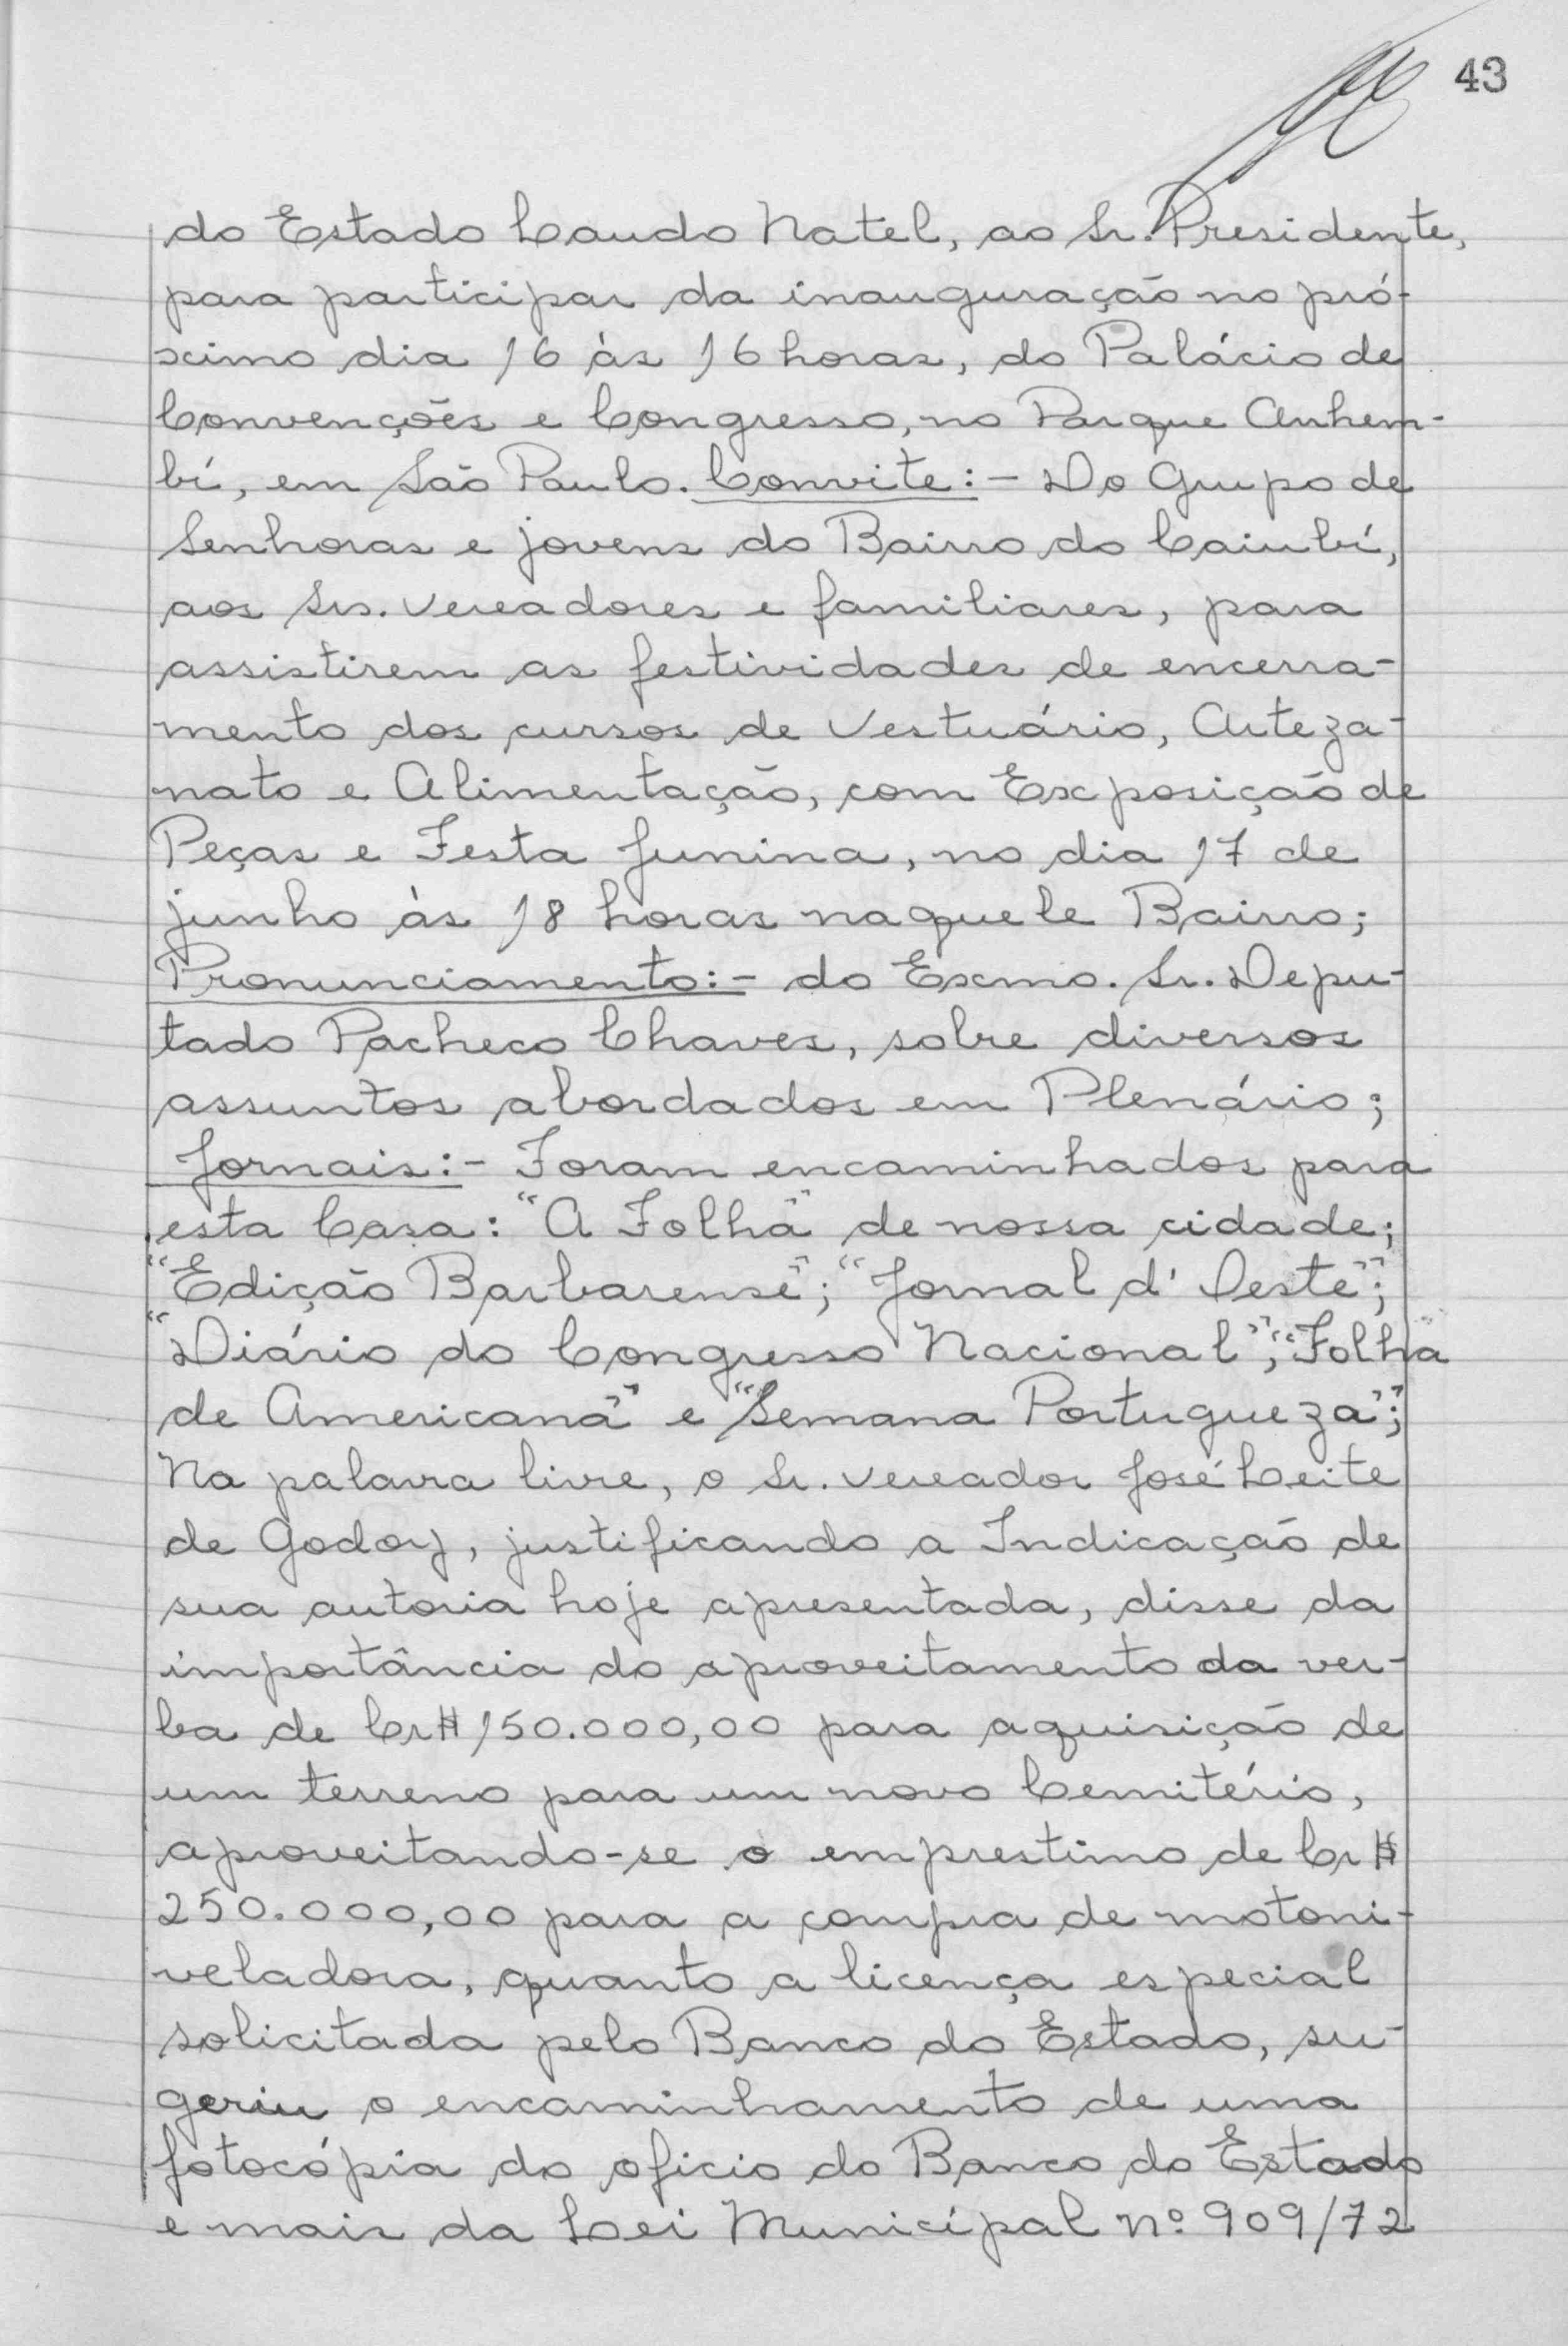 43
do Estado Laudo Natel, ao Sr. Presidente,
para participar da inauguração no pró-
ximo dia 16 às 16 horas, do Palácio de
Convenções e Congresso, no Parque Anhem-
bí, em São Paulo. Convite:- Do Grupo de
Senhoras e jovens do Bairro do Caiubí,
aos Srs. vereadores e familiares, para
assistirem as festividades de encerra-
mento dos cursos de Vestuário, Arteza-
nato e Alimentação, com Exposição de
Peças e Festa Junina, no dia 17 de
junho às 18 horas naquele Bairro;
Pronunciamento:- do Exmo. Sr. Depu-
tado Pacheco Chaves, sobre diversos
assuntos abordados em Plenário;
Jornais:- Foram encaminhados para
esta Casa: "A Folha" de nossa cidade;
"Edição Barbarense"; "Jornal d'Oeste";
"Diário do Congresso Nacional"; "Folha
de Americana" e "Semana Portugueza";
Na palavra livre, o Sr. vereador José Leite
de Godoy, justificando a Indicação de
sua autoria hoje apresentada, disse da
importância do aproveitamento da ver-
ba de Cr$ 150.000,00 para aquisição de
um terreno para um novo Cemitério,
aproveitando-se o emprestimo de Cr$
250.000,00 para a compra de motoni-
veladora, quanto a licença especial
solicitada pelo Banco do Estado, su-
geriu o encaminhamento de uma
fotocópia do oficio do Banco do Estado
e mais da Lei Municípal nº 909/72